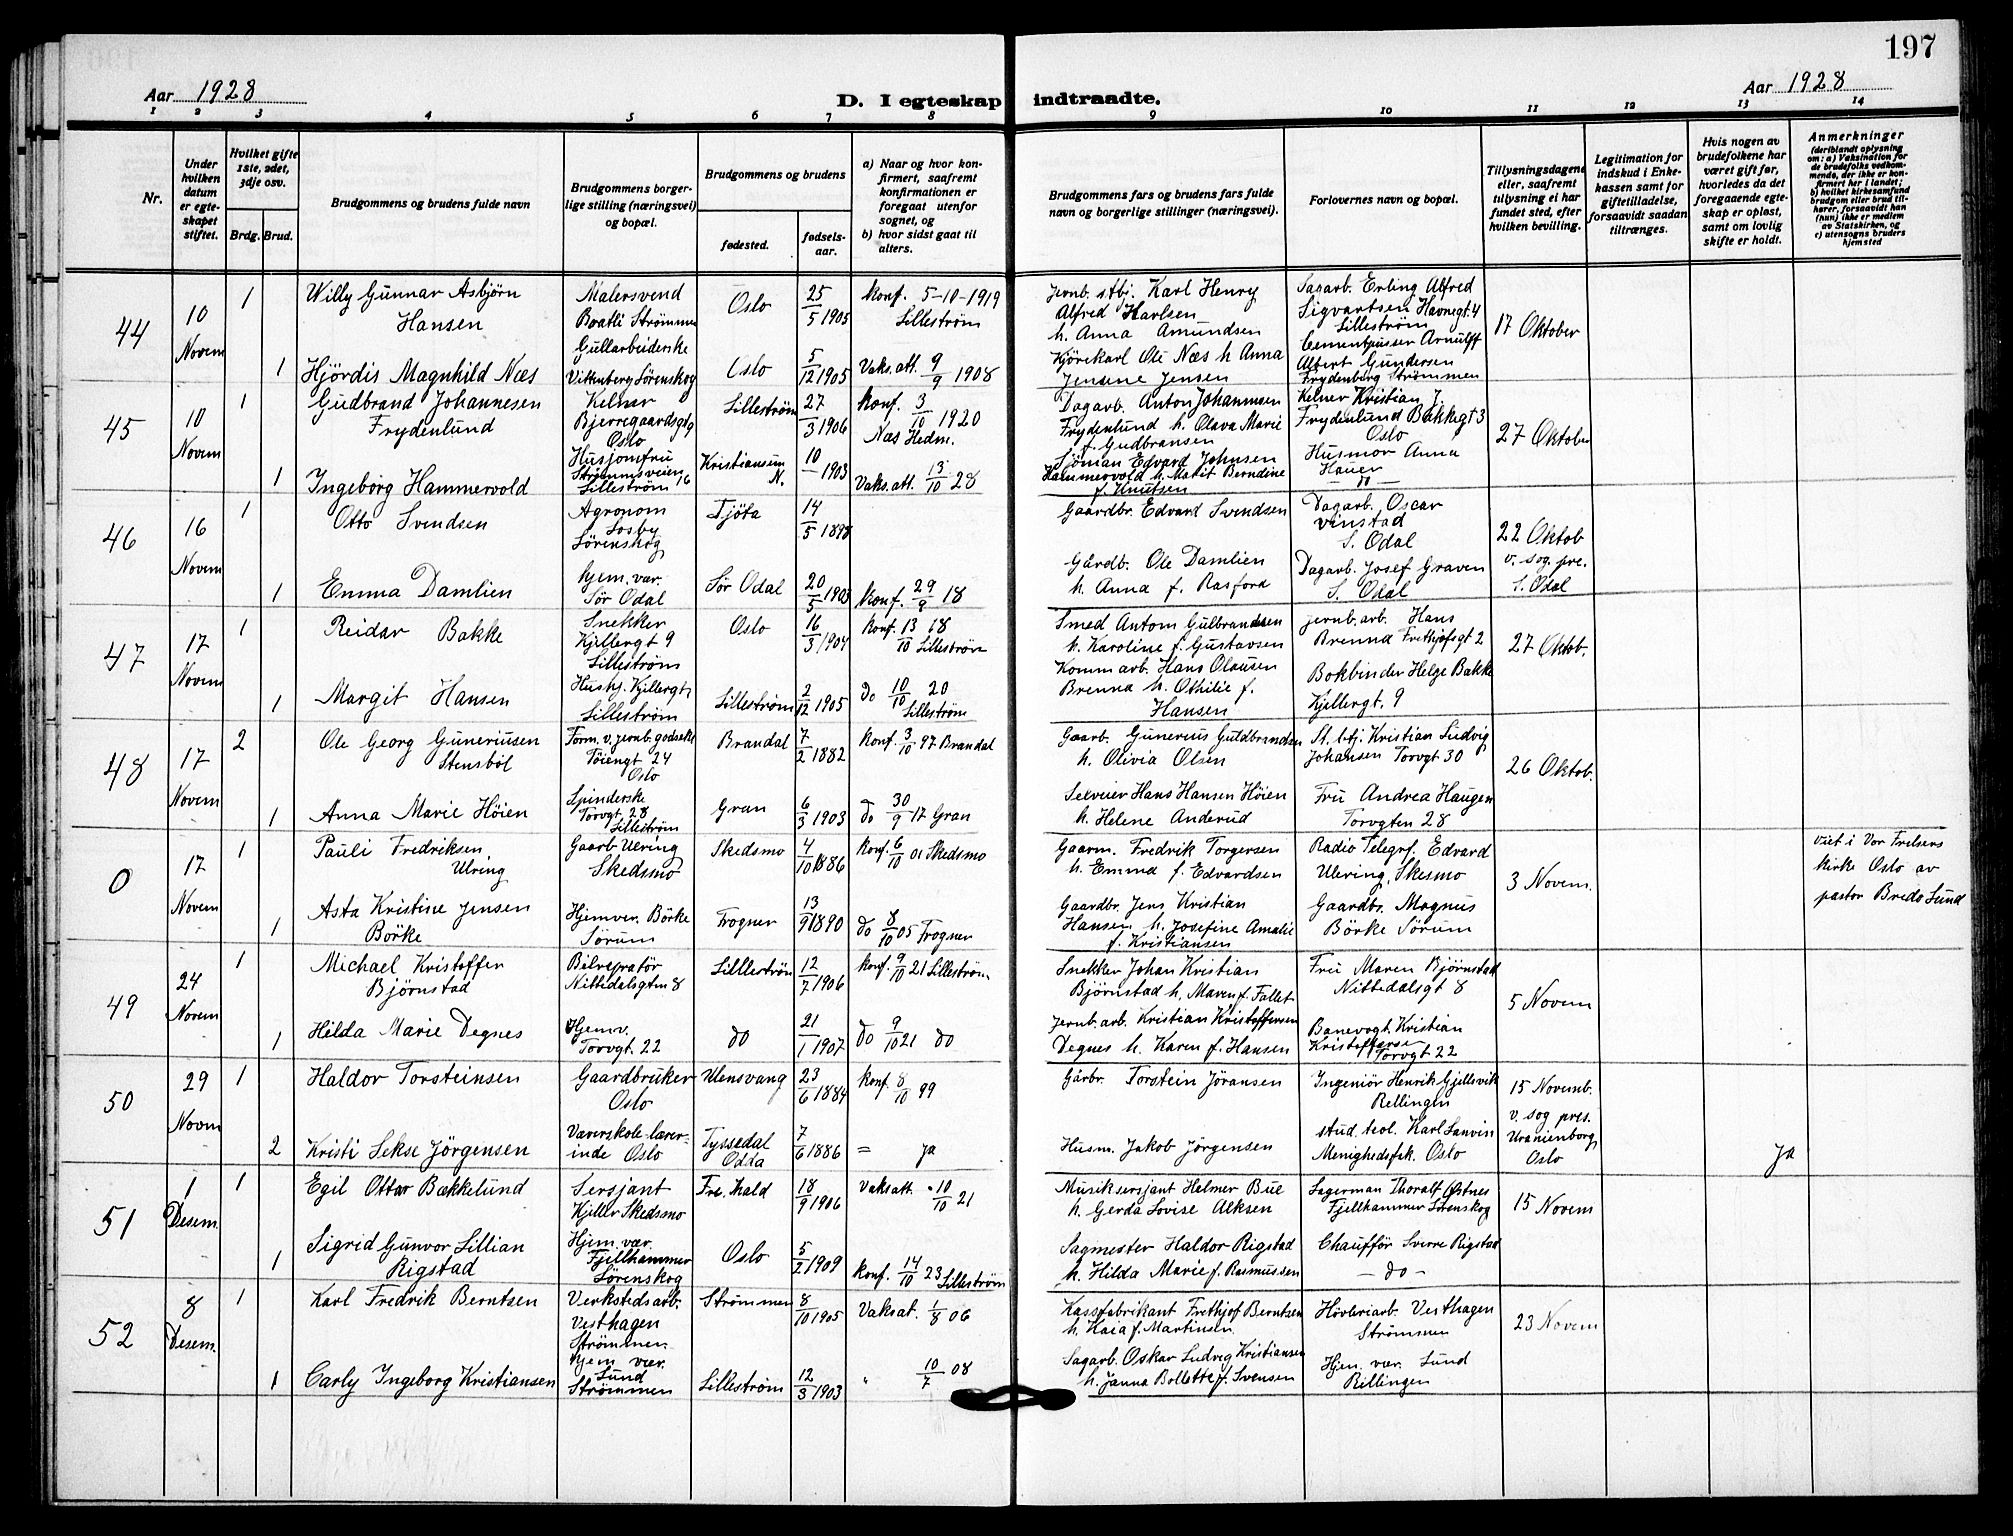 197
Aar 1928
D. I egteskap indtraadte.
Aar 1928
1 2 3 4 5 6 7 8 9 10 11 12 13 14
Nr.
Under hvilken datum er egteskapet stiftet.
Hvilket gifte 1ste, 2det, 3dje osv.
Brdg. Brud.
Brudgommens og brudens fulde navn
Brudgommens borgerlige stilling (næringsvei) og bopæl.
Brudgommens og brudens
fødested.
fødselsaar.
a) Naar og hvor konfirmert, saafremt konfirmationen er foregaat utenfor sognet, og
b) hvor sidst gaat til alters.
Brudgommens fars og brudens fars fulde navn og borgerlige stillinger (næringsvei).
Forlovernes navn og bopæl.
Tillysningsdagene eller, saafremt tillysning ei har fundet sted, efter hvilken bevilling.
Legitimation for indskud i Enkekassen samt for giftetilladelse, forsaavidt saadan tiltrænges.
Hvis nogen av brudefolkene har været gift før, hvorledes da det foregaaende egteskap er opløst, samt om lovlig skifte er holdt.
Anmerkninger (deriblandt oplysning om: a) Vaksination for de brudefolks vedkommende, der ikke er konfirmert her i landet; b) hvilket kirkesamfund brudgom eller brud tilhører, forsaavidt han (hun) ikke er medlem av Statskirken, og c) utensogns bruders hjemsted
44
10 Novem
1 Willy Gunnar Asbjørn Hansen
Malersvend Boatli Strømmen
Oslo 25/5 1905
Konf. 5-10-1919 Lilleström
Jernb. stbj. Karl Henry Alfred Karlsen h. Anna Amundsen
Sagarb. Erling Alfred Sigvartsen Havnegt 4 Lilleström
17 Oktober
1 Hjördis Magnhild Næs
Gullarbeiderske Vittenberg Sörenskog
Oslo 5/12 1905
Vaks. att. 9/9 1908
Kjörekarl Ole Næs h Anna Jensine Jensen
Cementpusser Arnulff Albert Gundersen Frydenberg Strömmen
45
10 Novem
1 Gudbrand Johannesen Frydenlund
Kelner Bjerregaardsgt 9 Oslo
Lilleström 27/3 1906
Konf. 3/10 1920 Næs Hedm.
Dagarb. Anton Johannesen Frydenlund h. Olava Marie f. Gudbransen
Kelner Kristian J. Frydenlund Bakkegt 3 Oslo
27 Oktober
1 Ingeborg Hammervold
Husjomfru Strömmsveien 16 Lilleström
Kristiansun N. 10/- 1903
Vaks. att. 13/10 28
Sjöman Edvard Johnsen Hammervold h. Marit Berndine f. Knutsen
Husmor Anna Hauer - do -
46
16 Novem
1 Otto Svendsen
Agronom Losby Sörenskog
Tjöta 14/5 1898
Gaardbr. Edvard Svendsen
Dagarb. Oscar Vinstad S. Odal
22 Oktob v. sog. pre. S. Odal
1 Emma Damlien
hjem. vær. Sör Odal
Sör Odal 20/5 1903
Konf. 29/9 18
Gårdb. Ole Damlien h. Anna f. Rasford
Dagarb. Josef Graven S. Odal
47
17 Novem
1 Reidar Bakke
Snekker Kjellergt 9 Lilleström
Oslo 16/3 1904
Konf. 13/10 18 Lilleström
Smed Antom Gulbrandsen h. Karoline f. Gustavsen
jernb. arb. Hans Brenna Frithjofsgt 2
27 Oktob.
1 Margit Hansen
Hushj. Kjellergt, Lilleström
Lilleström 2/12 1905
Do 10/10 20 Lilleström
Komm arb. Hans Olausen Brenna h. Othilie f. Hansen
Bokbinder Helge Bakke Kjellergt. 9
48
17 Novem
2 Ole Georg Guneriusen Stensböl
Form. v. jernb. godseks Töiengt 24 Oslo
Brandal 7/2 1882
Konf. 3/10 97 Brandal
Gaarb. Gunerius Guldbrandsen h. Olivia Olsen
St. btj. Kristian Ludvig Johansen Torvgt 30
26 Oktob.
1 Anna Marie Höien
Spinderske Torvgt. 28 Lilleström
Gran 6/3 1903
do 30/9 17 Gran
Selveier Hans Hansen Höien h. Helene Anderud
Fru Andrea Haugen Torvgten 28
0
17 Novem
1 Pauli Fredriksen Ulring
Gaarb Ulring Skedsmo
Skedsmo 4/10 1886
Konf. 6/10 01 Skedsmo
Gaarm. Fredrik Torgersen h. Emma f. Edvardsen
Radio Telegrf. Edvard Ulering, Skesmo
3 Novem.
Viet i Vor Frelsers Kirke Oslo av pastor Bredo Lund
1 Asta Kristine Jensen Börke
Hjemver. Börke Sörum
Frogner 13/9 1890
do 8/10 05 Frogner
Gaardbr. Jens Kristian Hansen h. Josefine Amalie f. Kristiansen
Gaardbr. Magnus Börke Sörum
49
24 Novem
1 Michael Kristoffer Björnstad
Bilreparatör Nittedalsgtn 8
Lilleström 12/7 1906
Konf. 9/10 21 Lilleström
Snekker Johan Kristian Björnstad h, Maren f. Fallet
Fru Maren Björnstad Nittedalsgt 8
5 Novem
1 Hilda Marie Degnes
Hjemv. Torvgt. 22
do 21/1 1907
do 9/10 21 do
Jernb. arb. Kristian Kristoffersen Degnes h. Karen f. Hansen
Banevogt. Kristian Kristoffersen Torvgt 22
50
29 Novm
1 Haldor Torsteinsen
Gaardbruker Oslo
Ulensvang 23/6 1884
Konf. 8/10 99
Gårbr. Torstein Jöransen
Ingeniör Henrik Gjellsvik Rellingen
15 Novemb. v. sog pres. Uranienborg, Oslo
2 Kristi Sekse Jörgensen
Væverskole-lærerinde Oslo
Tyssedal Odda 7/6 1886
= ja
Husm. Jakob Jörgensen
stud. teol. Karl Lanvin Menighedsfak. Oslo
Ja
51
1 Desem.
1 Egil Ottar Bækkelund
Sersjant Kjeller Skedsmo
Fre. hald 18/9 1906
Vaks att. 10/10 21
Musiksersjant Helmer Bue h. Gerda Lovise Alksen
Lagerman Thoralf Østnes Fjellhammer Sörenskog
15 Novem
1 Sigrid Gunvor Lillian Rigstad
Hjem. vær. Fjellhammer Sörenskog
Oslo 5/2 1909
Konf. 14/10 23 Lilleström
Sagmester Haldor Rigstad h. Hilda Marie f. Rasmussen
Chauffør Sverre Rigstad - do -
52
8 Desem.
1 Karl Fredrik Berntsen
Verkstedsarb. Vesthagen Strömmen
Strömmen 8/10 1905
Vaks at. 1/8 06
Kassfabrikant Frethjof Berntsen h, Kaia f. Martinsen
Hövleriarb. Vesthagen Strömmen
23 Novem
1 Carly Ingeborg Kristiansen
Hjem vær. Lund Strömmen
Lilleström 12/3 1903
" 10/7 08
Sagarb. Oskar Ludvig Kristiansen h. Janna Bollette f. Svensen
Hjem. vær. Lund Rillingen